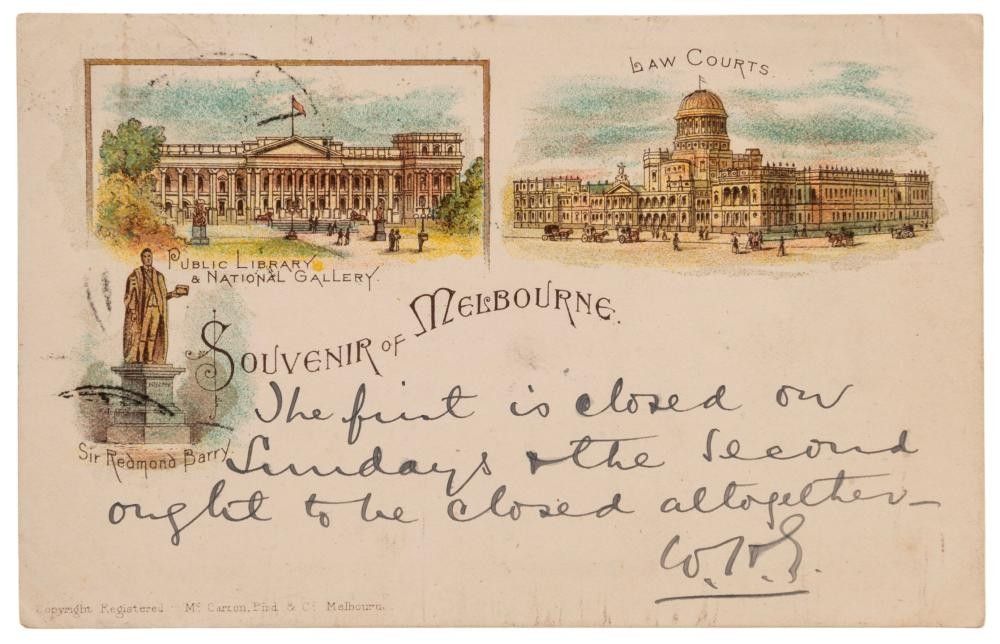 LAW COURTS.
PUBLIC LIBRARY
& NATIONAL GALLERY.
SOUVENIR OF MELBOURNE.
Sir Redmond Barry.
The first is closed on
Sundays & the second
ought to be closed altogether—
Copyright Registered Mc Carron, Bird & Co. Melbourne.